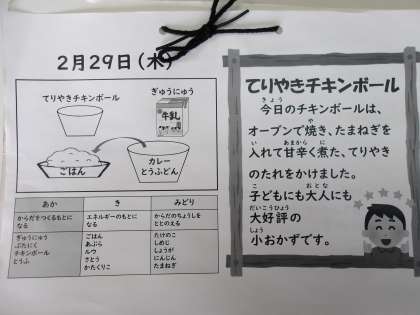 2月29日(木)
てりやきチキンボール
ぎゅうにゅう
牛乳
ごはん
カレー
とうふどん
あか
き
みどり
からだをつくるもとに
なる
エネルギーのもとに
なる
からだのちょうしを
ととのえる
ぎゅうにゅう
ぶたにく
チキンボール
とうふ
ごはん
あぶら
ルウ
さとう
かたくりこ
たけのこ
しめじ
しょうが
にんじん
たまねぎ
てりやきチキンボール
きょう
今日のチキンボールは、
や
オーブンで焼き、たまねぎを
い あまから に
入れて甘辛く煮た、てりやき
のたれをかけました。
こ おとな
子どもにも大人にも
だいこうひょう
大好評の
しょう
小おかずです。